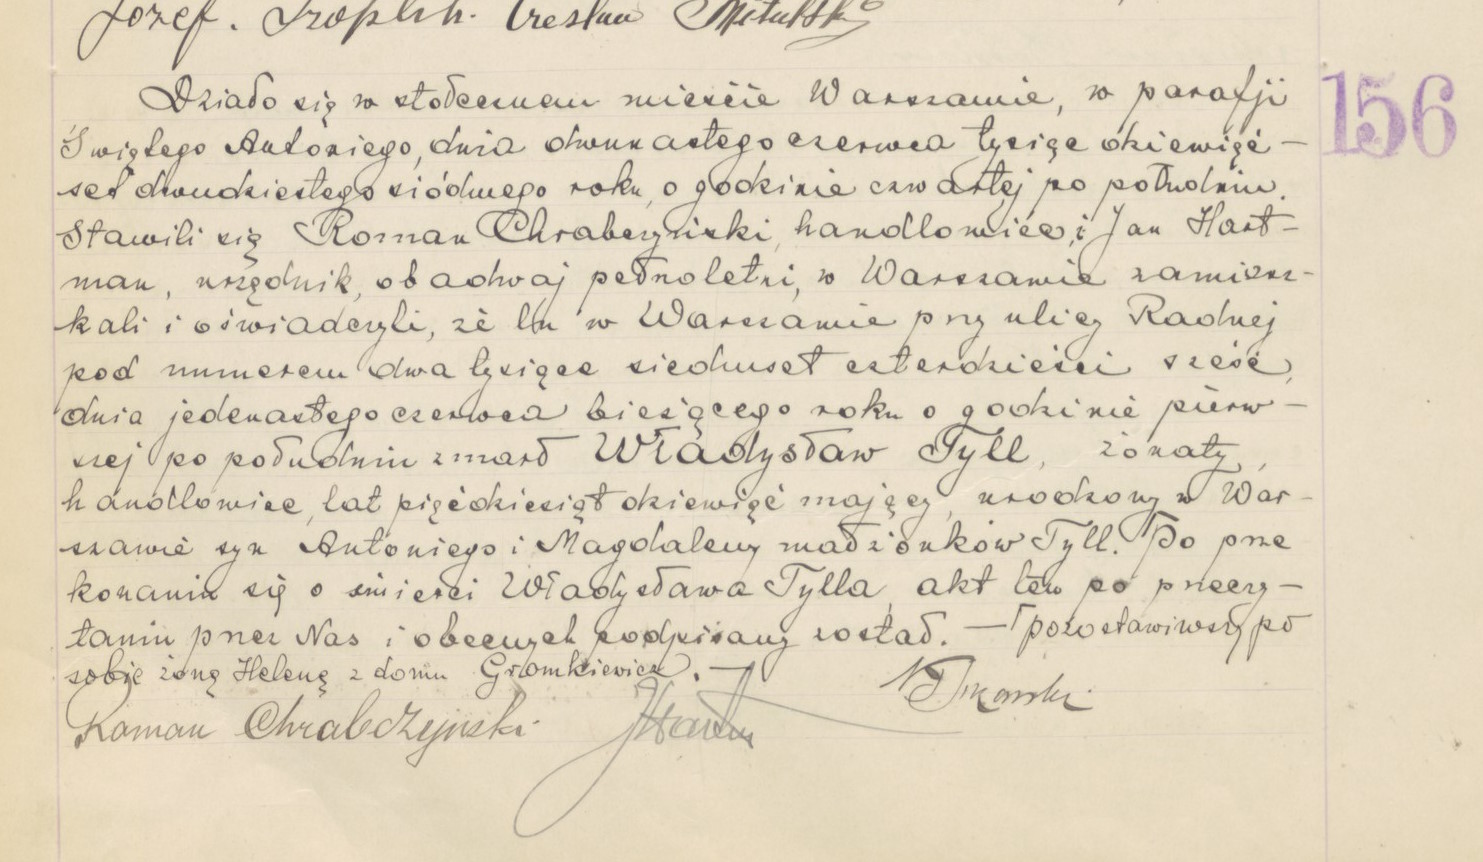 Józef. Czesław
Działo się w stołecznem mieście Warszawie, w parafji
156
Świętego Antoniego, dnia dwunastego czerwca tysiąc dziewięć-
set dwudziestego siódmego roku, o godzinie czwartej po południu.
Stawili się Roman Chrabczyński, handlowiec, i Jan Hart-
man, urzędnik, obadwaj pełnoletni, w Warszawie zamiesz-
kali i oświadczyli, że tu w Warszawie przy ulicy Radnej
pod numerem dwa tysiące siedmset czterdzieści sześć,
dnia jedenastego czerwca bieżącego roku o godzinie pierw-
szej po południu zmarł Władysław Tyll, żonaty,
handlowiec, lat pięćdziesiąt dziewięć mający, urodzony w War-
szawie syn Antoniego i Magdaleny małżonków Tyll. Po prze
konaniu się o śmierci Władysława Tylla, akt ten po przeczy-
taniu przez Nas i obecnych podpisany został. — pozostawiwszy po
sobie żonę Helenę z domu Gromkiewicz. —
Roman Chrabczyński JHartm